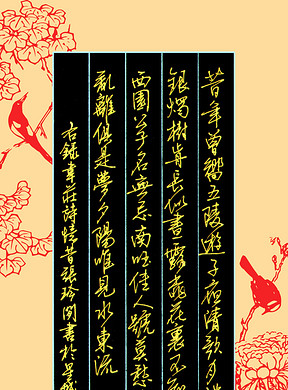 昔年曾嚮五陵遊子夜清歌月
銀燭樹前長似晝露桃花裏不
西園公子名無忌南國佳人號莫愁
亂離俱是夢夕陽唯見水東流
右錄韋莊詩憶昔張玲書於